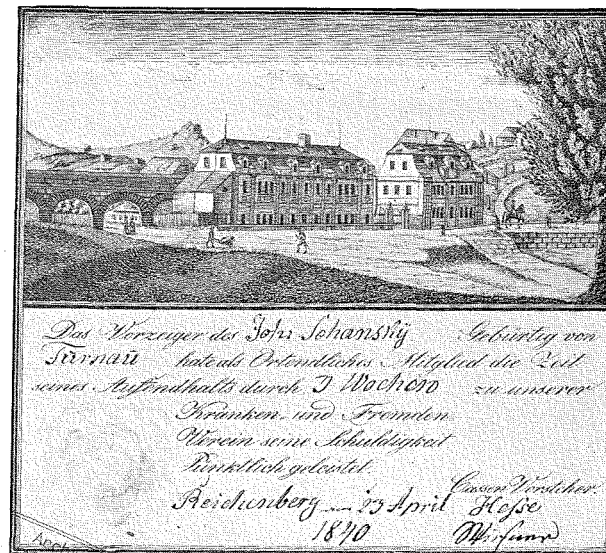 Das Vorzeiger des Joh: Schansky Gebürtig von
Turnau hat als Ortendliches Mitglied die Zeit
seines Aufendhalts durch 9 Wochen zu unserer
Kranken- und Fremden
Verein seine Schuldigkeit
Pünktlich geleistet.
Cassen Vorsteher.
Reichenberg 23 April Hesse
1840